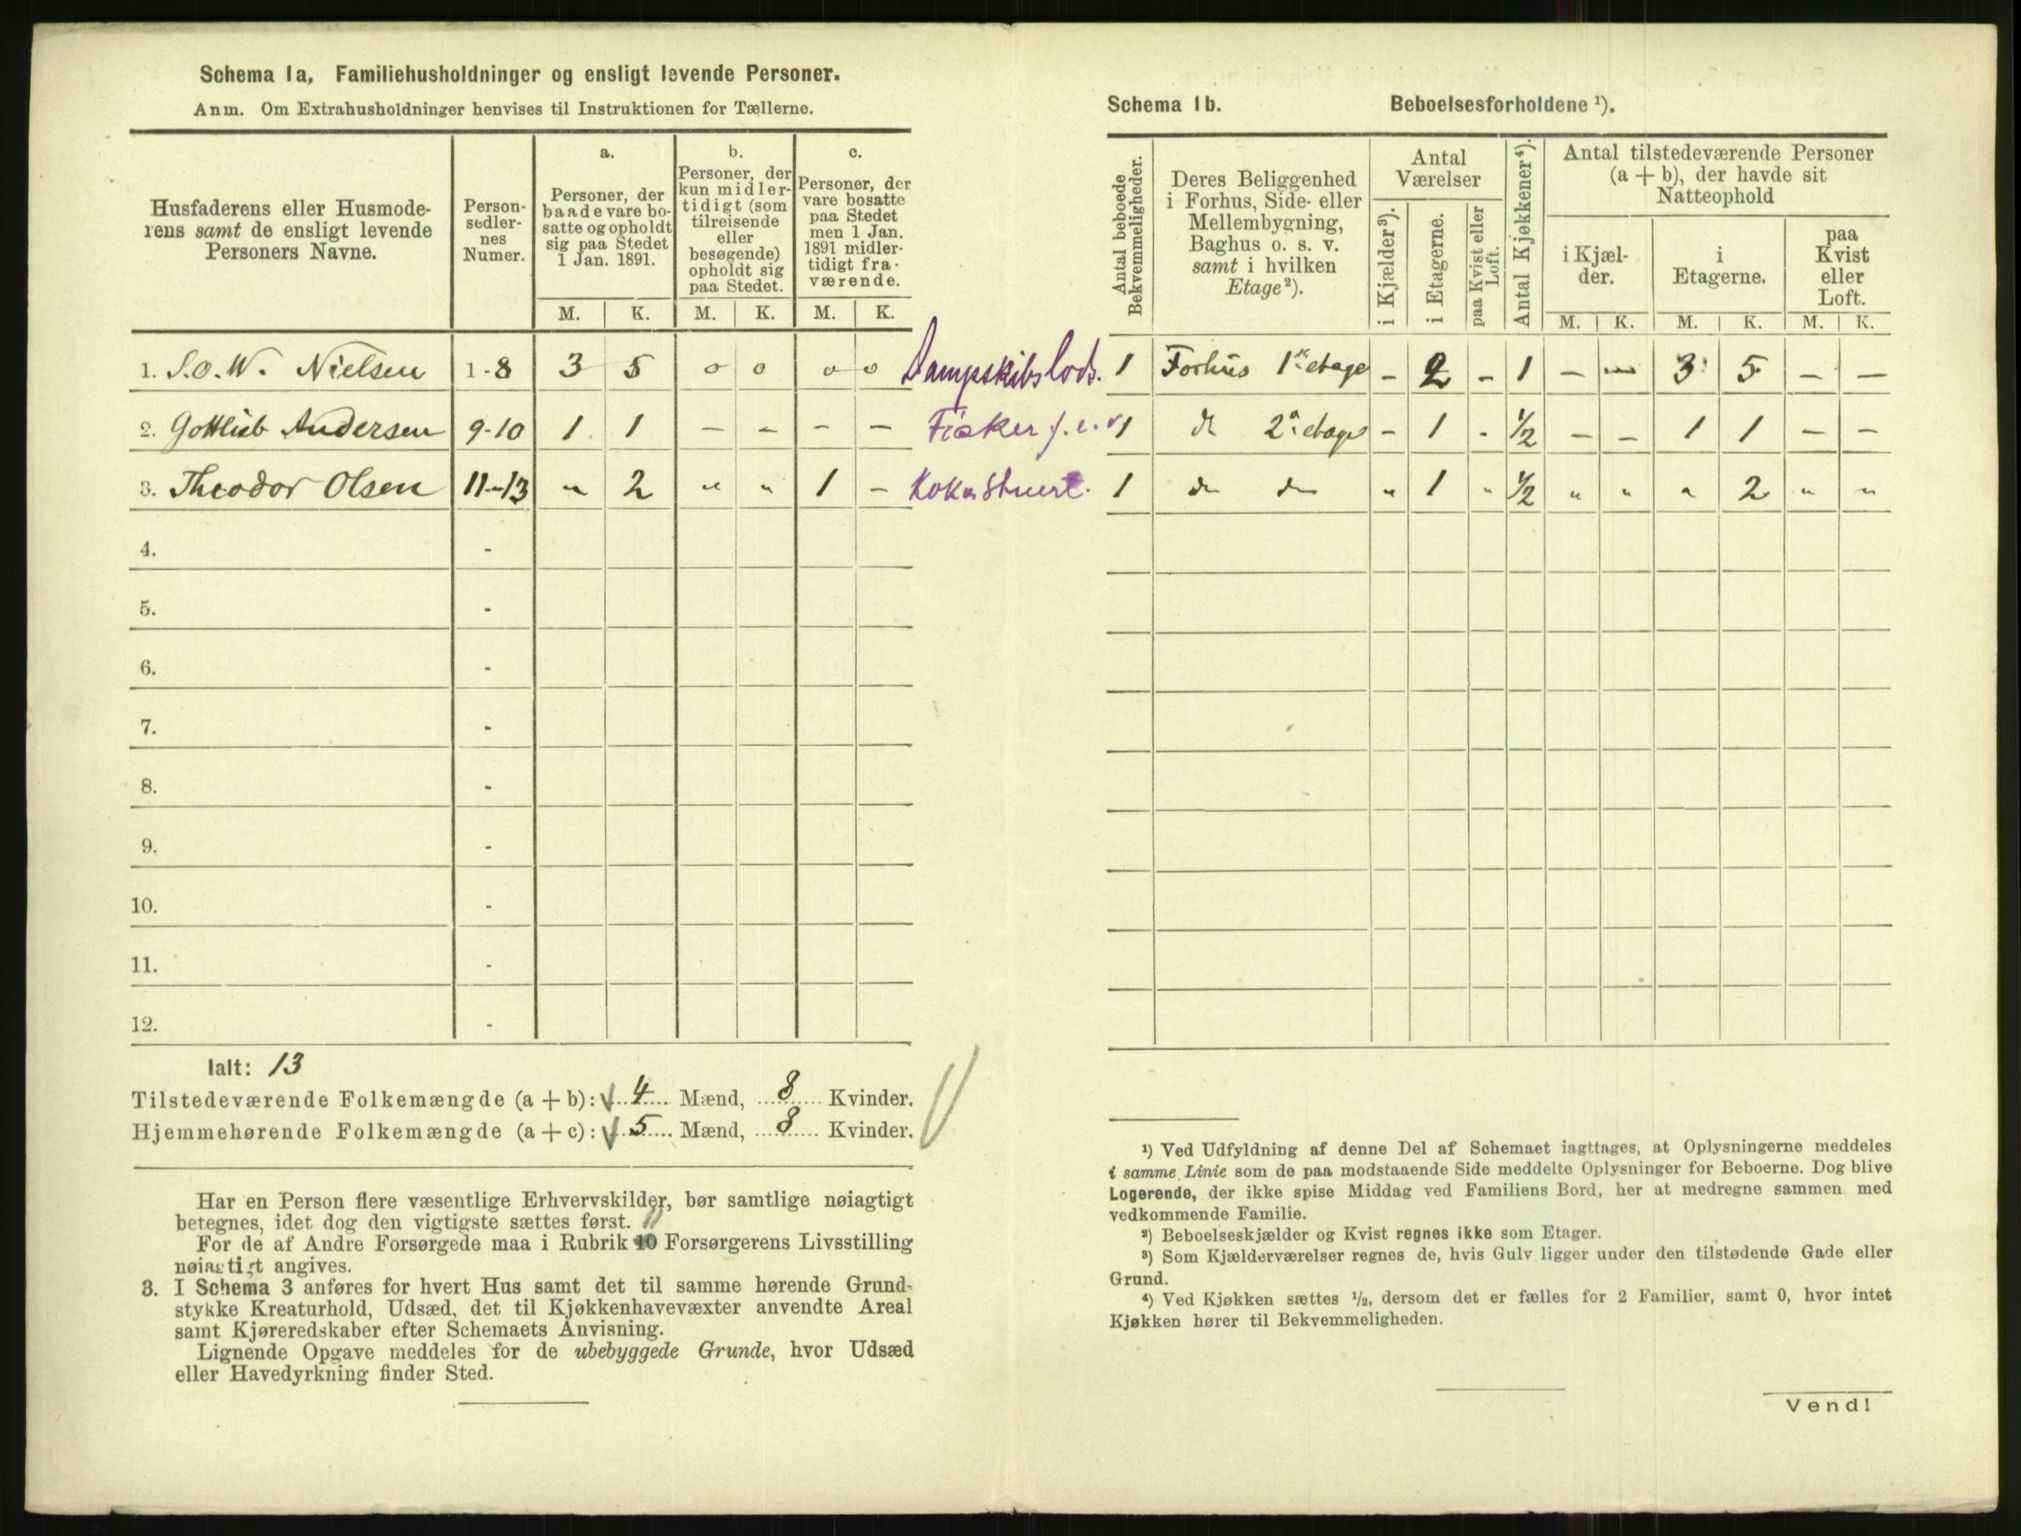 Schema 1a, Familiehusholdninger og ensligt levende Personer.
Anm. Om Extrahusholdninger henvises til Instruktionen for Tællerne.
Husfaderens eller Husmode-
rens samt de ensligt levende
Personers Navne.
Person-
sedler-
nes
Numer.
a.
Personer, der
baade vare bo-
satte og opholdt
sig paa Stedet
1 Jan. 1891.
b.
Personer, der
kun midler-
tidigt (som
tilreisende
eller
besøgende)
opholdt sig
paa Stedet.
c.
Personer, der
vare bosatte
paa Stedet
men 1 Jan.
1891 midler-
tidigt fra-
værende.
M. K. M. K. M. K.
1. S.O.W. Nielsen 1-8 3 5 o o o o Dampskibslods.
2. Gottlieb Andersen 9-10 1 1 — — — — Fisker f.e.r
3. Theodor Olsen 11-13 " 2 " " 1 —
4. -
5. -
6. -
7. -
8. -
9. -
10. -
11. -
12. -
Ialt: 13
Tilstedeværende Folkemængde (a + b): 4 Mænd, 8 Kvinder.
Hjemmehørende Folkemængde (a + c): 5 Mænd, 8 Kvinder.
Har en Person flere væsentlige Erhvervskilder, bør samtlige nøiagtigt
betegnes, idet dog den vigtigste sættes først. 11
For de af Andre Forsørgede maa i Rubrik 10 Forsørgerens Livsstilling
nøiagtigt angives.
3. I Schema 3 anføres for hvert Hus samt det til samme hørende Grund-
stykke Kreaturhold, Udsæd, det til Kjøkkenhavevæxter anvendte Areal
samt Kjøreredskaber efter Schemaets Anvisning.
Lignende Opgave meddeles for de ubebyggede Grunde, hvor Udsæd
eller Havedyrkning finder Sted.
Schema 1b. Beboelsesforholdene ¹).
Antal beboede
Bekvemmeligheder.
Deres Beliggenhed
i Forhus, Side- eller
Mellembygning,
Baghus o. s. v.
samt i hvilken
Etage²).
Antal
Værelser
i Kjælder³).
i Etagerne.
paa Kvist eller
Loft.
Antal Kjøkkener⁴).
Antal tilstedeværende Personer
(a + b), der havde sit
Natteophold
i Kjæl-
der.
i
Etagerne.
paa
Kvist
eller
Loft.
M. K. M. K. M. K.
1 Forhus 1ste etage — 2 — 1 — — 3 5 — —
1 do 2den etage — 1 - 1/2 — — 1 1 — —
1 do do " 1 " 1/2 " " " 2 " "
¹) Ved Udfyldning af denne Del af Schemaet iagttages, at Oplysningerne meddeles
i samme Linie som de paa modstaaende Side meddelte Oplysninger for Beboerne. Dog blive
Logerende, der ikke spise Middag ved Familiens Bord, her at medregne sammen med
vedkommende Familie.
²) Beboelseskjælder og Kvist regnes ikke som Etager.
³) Som Kjælderværelser regnes de, hvis Gulv ligger under den tilstødende Gade eller
Grund.
⁴) Ved Kjøkken sættes ½, dersom det er fælles for 2 Familier, samt 0, hvor intet
Kjøkken hører til Bekvemmeligheden.
Vend!